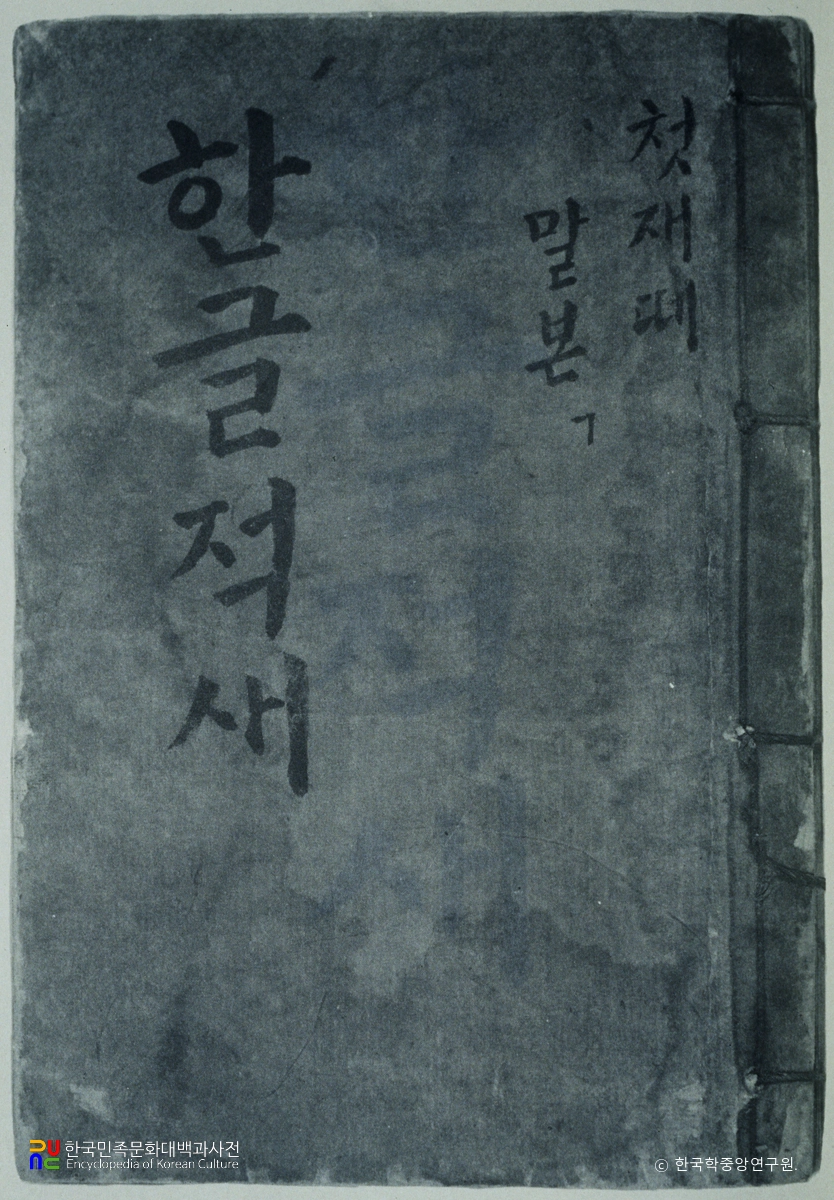 첫재떼
말본
ㄱ
한글적새
한국민족문화대백과사전
Encyclopedia of Korean Culture
© 한국학중앙연구원.